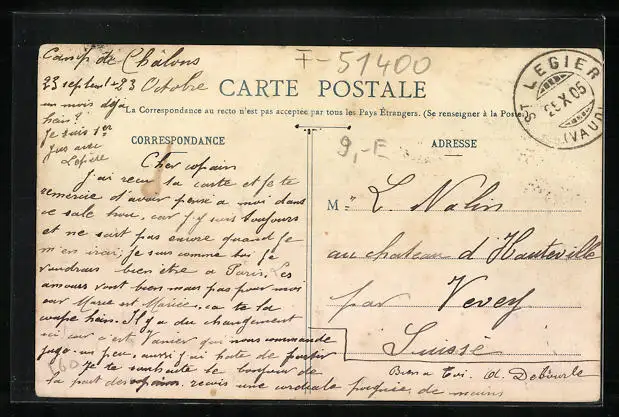 Camp de Châlons
F-51400
23 septembre 23 Octobre
un mois déjà
hein?
Je suis 1er
jus avec
CARTE POSTALE
La Correspondance au recto n'est pas acceptée par tous les Pays Étrangers. (Se renseigner à la Poste)
ST LEGIER
25 X 05
(VAUD)
CORRESPONDANCE
ADRESSE
9,-E
Cher copain
J'ai reçu ta carte et je te
remercie d'avoir pensé a moi dans
ce sale trou, car j'y suis toujours
et ne sait pas encore quand je
m'en irai; Je suis comme toi je
voudrais bien être a Paris, Les
amours vont bien mais pas pour moi
car Marie est Mariée, ca te la
coupe hein. Il y a du changement
ici car c'est Varnier qui nous commande
juge un peu, aussi j'ai hate de partir
Je te souhaite le bonjour de
la part des copains, reçois une cordiale poignée de mains
Bien a toi. A. Debourle
M. L. Nalin
au chateau d'Hauteville
par Vevey
Suisse